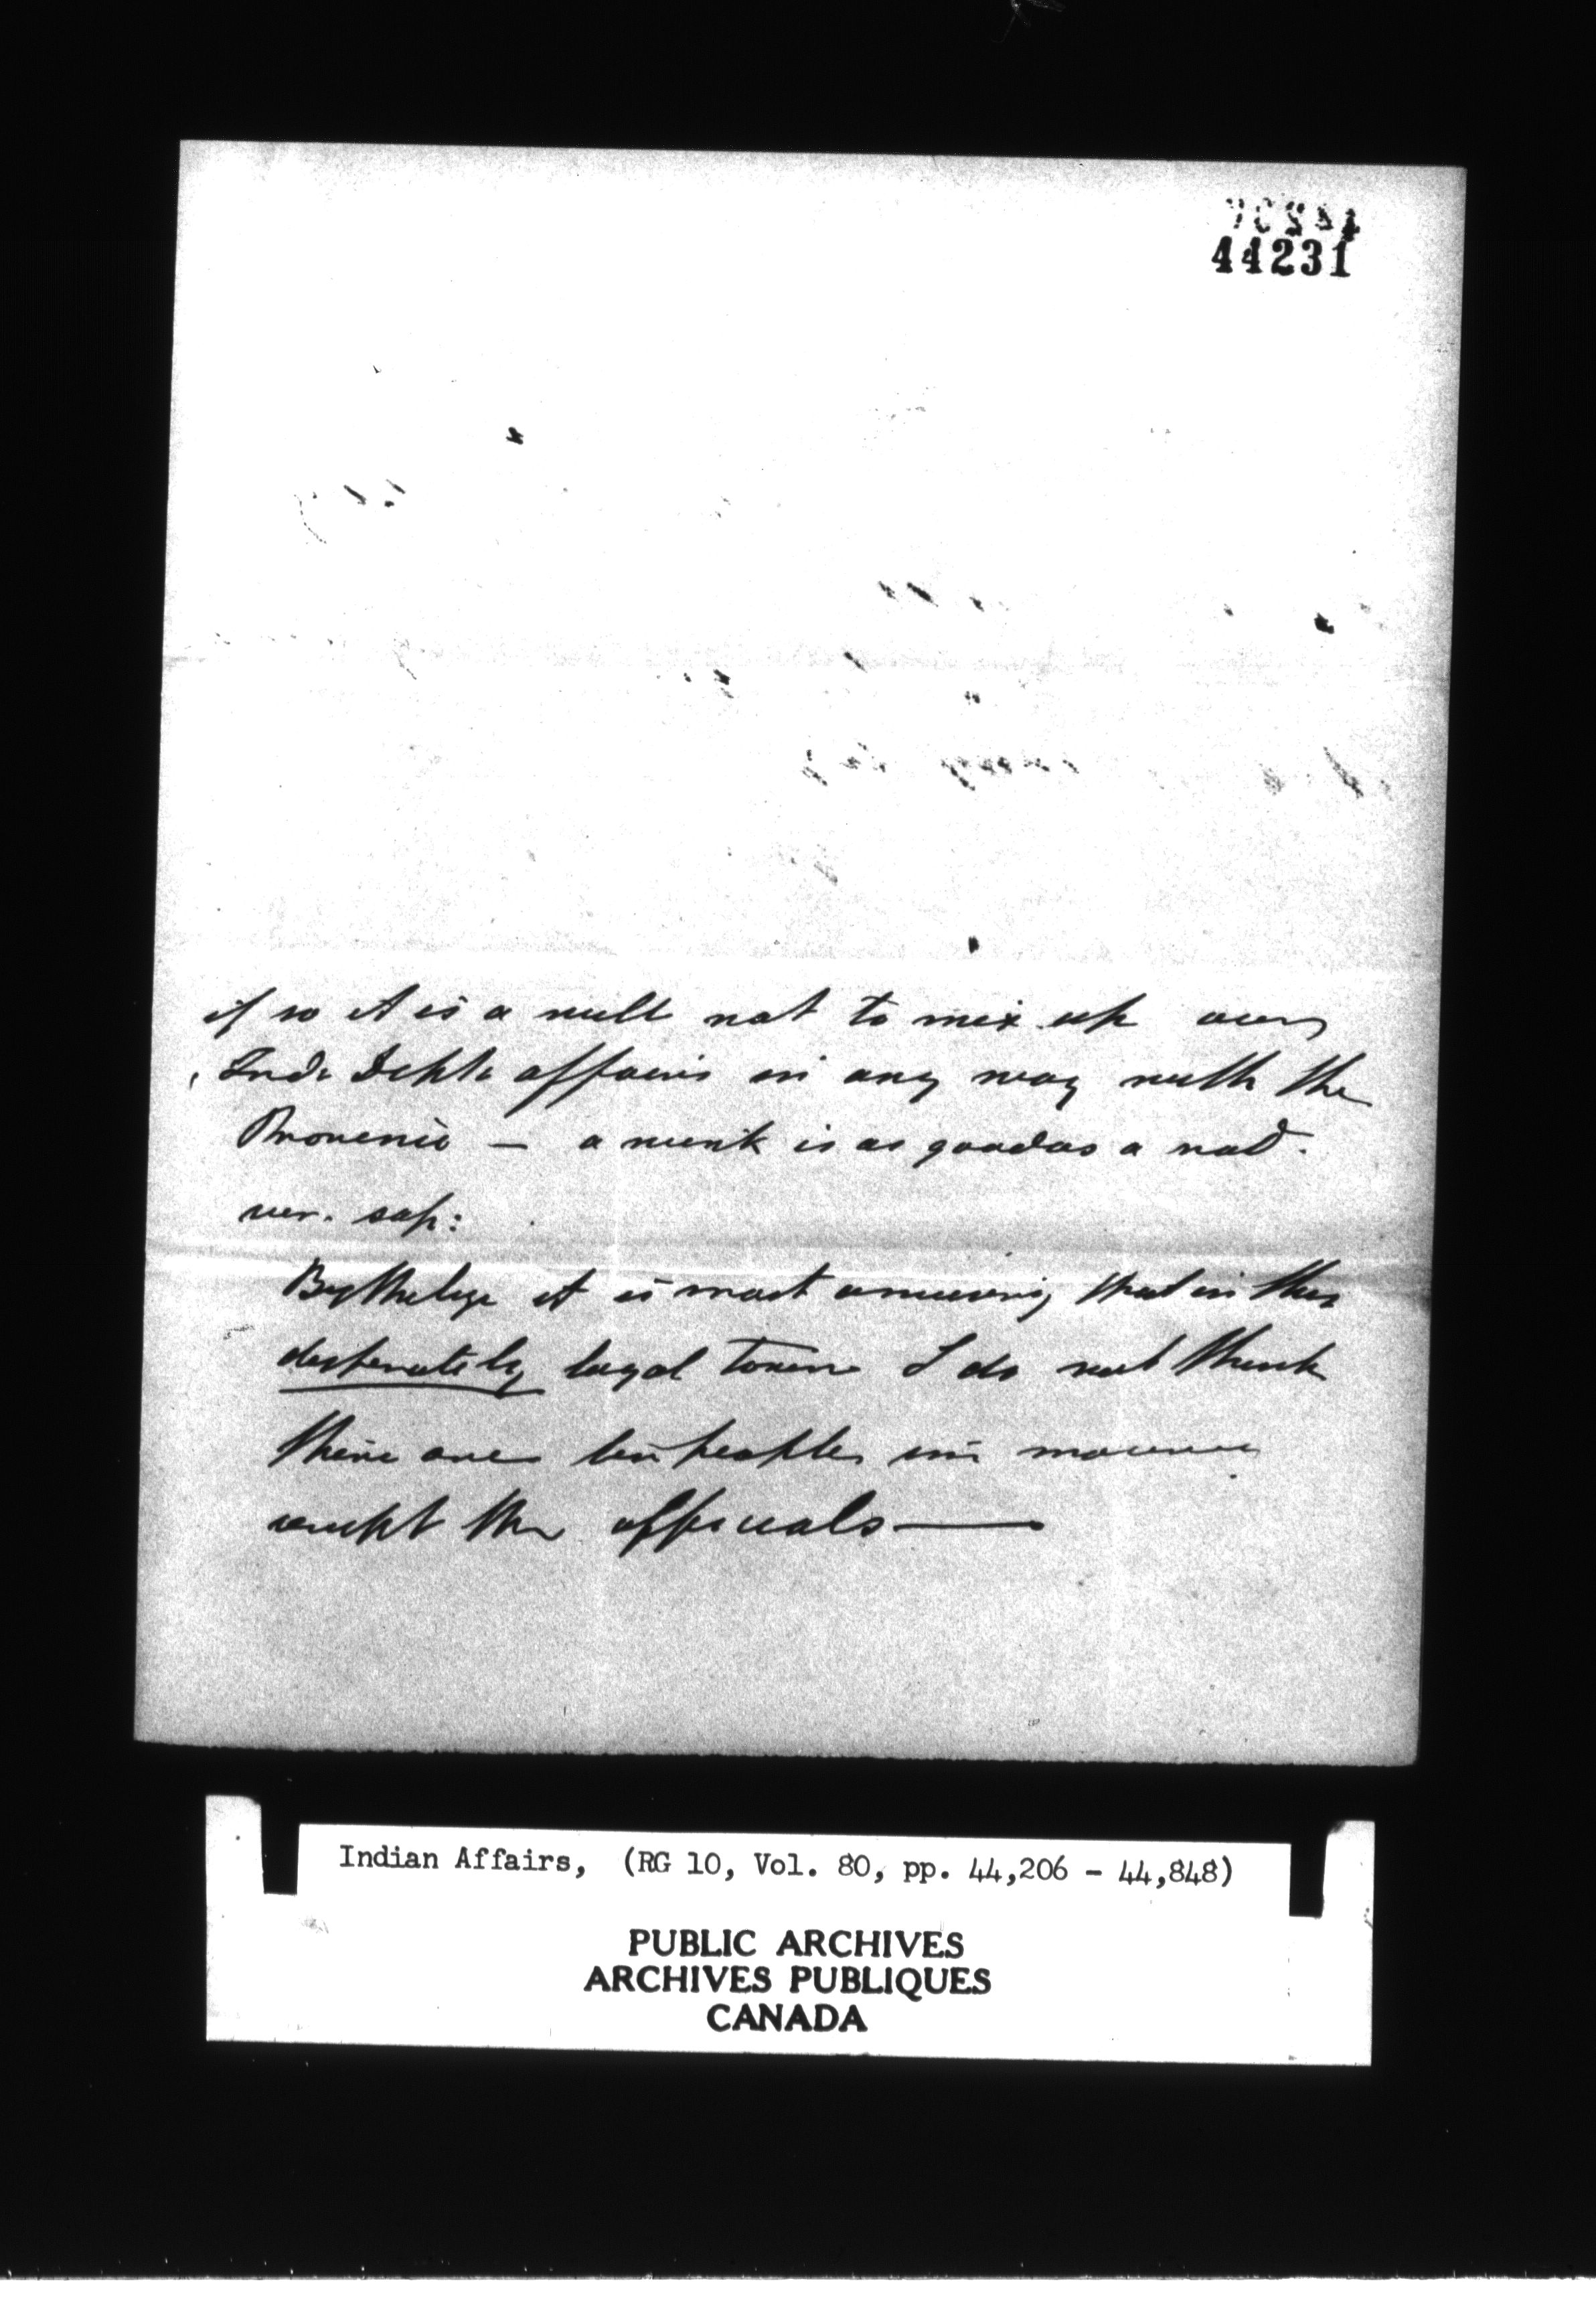 44231
if so it is as well not to mix up our
Indn Deptl affairs in any way with the
Provence – a wink is as good as a nod.
ver. sap:
By the bye it is most amusing that in this
desperately loyal town I do not think
there are ten people in mourning
except the officials —
Indian Affairs, (RG 10, Vol. 80, pp. 44,206 - 44,848)
PUBLIC ARCHIVES
ARCHIVES PUBLIQUES
CANADA